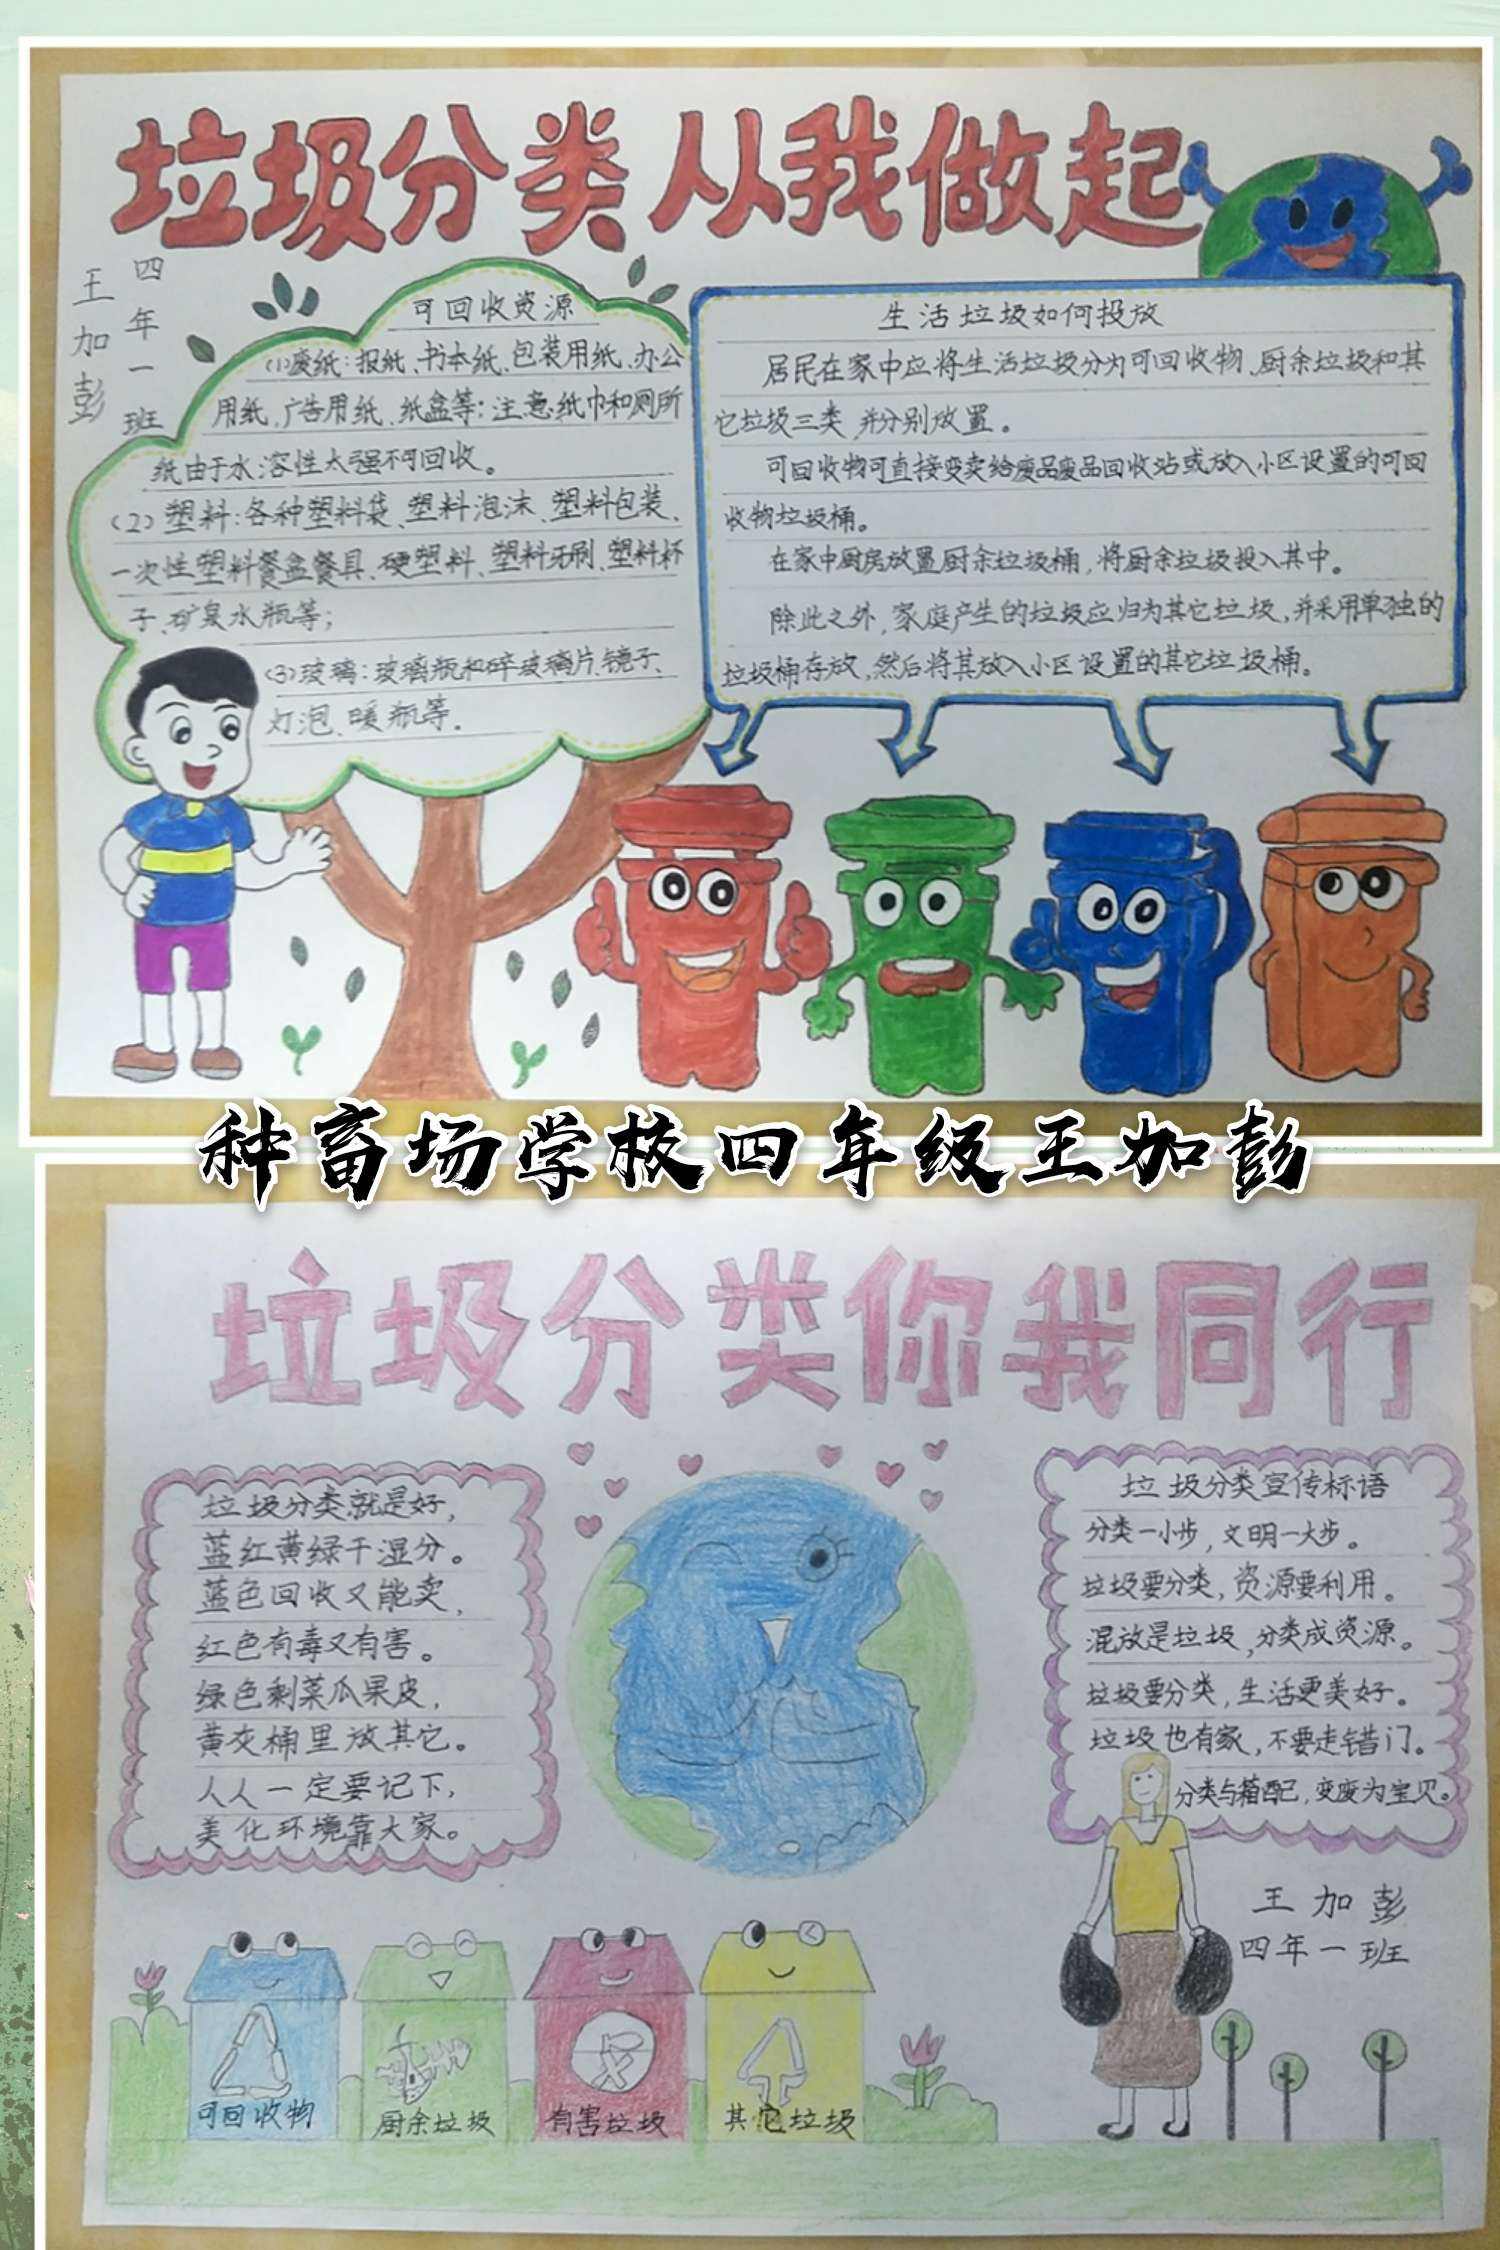 垃圾分类从我做起
四年一班
王加彭
可回收资源
(1)废纸:报纸、书本纸、包装用纸、办公
用纸、广告用纸、纸盒等;注意纸巾和厕所
纸由于水溶性太强不可回收。
(2)塑料:各种塑料袋、塑料泡沫、塑料包装、
一次性塑料餐盒餐具、硬塑料、塑料牙刷、塑料杯
子、矿泉水瓶等;
(3)玻璃:玻璃瓶和碎玻璃片、镜子、
灯泡、暖瓶等.
生活垃圾如何投放
居民在家中应将生活垃圾分为可回收物、厨余垃圾和其
它垃圾三类,并分别放置。
可回收物可直接变卖给废品废品回收站或放入小区设置的可回
收物垃圾桶。
在家中厨房放置厨余垃圾桶,将厨余垃圾投入其中。
除此之外,家庭产生的垃圾应归为其它垃圾,并采用单独的
垃圾桶存放,然后将其放入小区设置的其它垃圾桶。
种畜场学校四年级王加彭
垃圾分类你我同行
垃圾分类就是好,
蓝红黄绿干湿分。
蓝色回收又能卖,
红色有毒又有害。
绿色剩菜瓜果皮,
黄灰桶里放其它。
人人一定要记下,
美化环境靠大家。
垃圾分类宣传标语
分类一小步,文明一大步。
垃圾要分类,资源要利用。
混放是垃圾,分类成资源。
垃圾要分类,生活更美好。
垃圾也有家,不要走错门。
分类与箱配,变废为宝贝。
王加彭
四年一班
可回收物
厨余垃圾
有害垃圾
其它垃圾